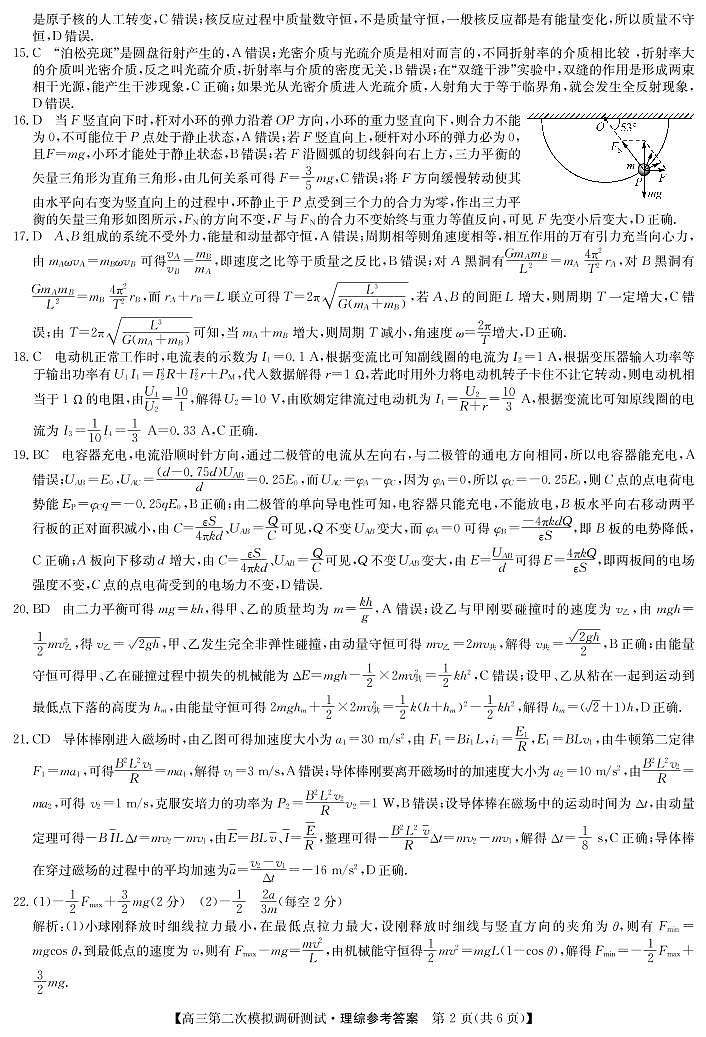 是原子核的人工转变,C错误;核反应过程中质量数守恒,不是质量守恒,一般核反应都是有能量变化,所以质量不守
恒,D错误.
15.C “泊松亮斑”是圆盘衍射产生的,A错误;光密介质与光疏介质是相对而言的,不同折射率的介质相比较,折射率大
的介质叫光密介质,反之叫光疏介质,折射率与介质的密度无关,B错误;在“双缝干涉”实验中,双缝的作用是形成两束
相干光源,能产生干涉现象,C正确;如果光从光密介质进入光疏介质,入射角大于等于临界角,就会发生全反射现象,
D错误.
16.D 当F竖直向下时,杆对小环的弹力沿着OP方向,小环的重力竖直向下,则合力不能
为0,不可能位于P点处于静止状态,A错误;若F竖直向上,硬杆对小环的弹力必为0,
且F=mg,小环才能处于静止状态,B错误;若F沿圆弧的切线斜向右上方,三力平衡的
矢量三角形为直角三角形,由几何关系可得F=3/5 mg,C错误;将F方向缓慢转动使其
由水平向右变为竖直向上的过程中,环静止于P点受到三个力的合力为零,作出三力平
衡的矢量三角形如图所示,F_N的方向不变,F与F_N的合力不变始终与重力等值反向,可见F先变小后变大,D正确.
O 53°
F_N
m
P F
mg
17.D A、B组成的系统不受外力,能量和动量都守恒,A错误;周期相等则角速度相等,相互作用的万有引力充当向心力,
由m_Aωv_A=m_Bωv_B可得v_A/v_B=m_B/m_A,即速度之比等于质量之反比,B错误;对A黑洞有Gm_Am_B/L²=m_A 4π²/T² r_A,对B黑洞有
Gm_Am_B/L²=m_B 4π²/T² r_B,而r_A+r_B=L联立可得T=2π√(L³/G(m_A+m_B)),若A、B的间距L增大,则周期T一定增大,C错
误;由T=2π√(L³/G(m_A+m_B))可知,当m_A+m_B增大,则周期T减小,角速度ω=2π/T增大,D正确.
18.C 电动机正常工作时,电流表的示数为I₁=0.1 A,根据变流比可知副线圈的电流为I₂=1 A,根据变压器输入功率等
于输出功率有U₁I₁=I₂²R+I₂²r+P_M,代入数据解得r=1 Ω,若此时用外力将电动机转子卡住不让它转动,则电动机相
当于1 Ω的电阻,由U₁/U₂=10/1,解得U₂=10 V,由欧姆定律流过电动机为I₄=U₂/(R+r)=10/3 A,根据变流比可知原线圈的电
流为I₃=1/10 I₄=1/3 A=0.33 A,C正确.
19.BC 电容器充电,电流沿顺时针方向,通过二极管的电流从左向右,与二极管的通电方向相同,所以电容器能充电,A
错误;U_AB=E₀,U_AC=(d-0.75d)U_AB/d=0.25E₀,而U_AC=φ_A-φ_C,因为φ_A=0,所以φ_C=-0.25E₀,则C点的点电荷电
势能E_P=φ_Cq=-0.25qE₀,B正确;由二极管的单向导电性可知,电容器只能充电,不能放电,B板水平向右移动两平
行板的正对面积减小,由C=εS/4πkd、U_AB=Q/C可见,Q不变U_AB变大,而φ_A=0可得φ_B=-4πkdQ/εS,即B板的电势降低,
C正确;A板向下移动d增大,由C=εS/4πkd、U_AB=Q/C可见,Q不变U_AB变大,由E=U_AB/d可得E=4πkQ/εS,即两板间的电场
强度不变,C点的点电荷受到的电场力不变,D错误.
20.BD 由二力平衡可得mg=kh,得甲、乙的质量均为m=kh/g,A错误;设乙与甲刚要碰撞时的速度为v乙,由mgh=
1/2 mv乙²,得v乙=√(2gh),甲、乙发生完全非弹性碰撞,由动量守恒可得mv乙=2mv共,解得v共=√(2gh)/2,B正确;由能量
守恒可得甲、乙在碰撞过程中损失的机械能为ΔE=mgh-1/2×2mv共²=1/2 kh²,C错误;设甲、乙从粘在一起到运动到
最低点下落的高度为h_m,由能量守恒可得2mgh_m+1/2×2mv共²=1/2 k(h+h_m)²-1/2 kh²,解得h_m=(√2+1)h,D正确.
21.CD 导体棒刚进入磁场时,由乙图可得加速度大小为a₁=30 m/s²,由F₁=Bi₁L,i₁=E₁/R,E₁=BLv₁,由牛顿第二定律
F₁=ma₁,可得B²L²v₁/R=ma₁,解得v₁=3 m/s,A错误;导体棒刚要离开磁场时的加速度大小为a₂=10 m/s²,由B²L²v₂/R=
ma₂,可得v₂=1 m/s,克服安培力的功率为P₂=B²L²v₂/R v₂=1 W,B错误;设导体棒在磁场中的运动时间为Δt,由动量
定理可得-BI̅LΔt=mv₂-mv₁,由E̅=BLv̅、I̅=E̅/R,整理可得-B²L²v̅/R Δt=mv₂-mv₁,解得Δt=1/8 s,C正确;导体棒
在穿过磁场的过程中的平均加速为a̅=(v₂-v₁)/Δt=-16 m/s²,D正确.
22.(1)-1/2 F_max+3/2 mg(2分) (2)-1/2 2a/3m(每空2分)
解析:(1)小球刚释放时细线拉力最小,在最低点拉力最大,设刚释放时细线与竖直方向的夹角为θ,则有F_min=
mgcos θ,到最低点的速度为v,则有F_max-mg=mv²/L,由机械能守恒得1/2 mv²=mgL(1-cos θ),解得F_min=-1/2 F_max+
3/2 mg.
【高三第二次模拟调研测试·理综参考答案 第2页(共6页)】